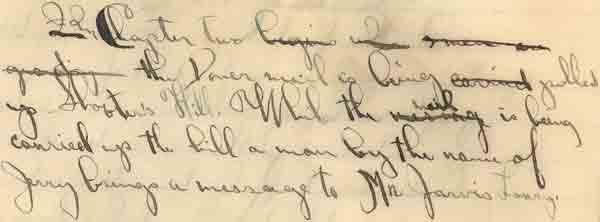 In Chapter two begin when a man on
grading the Dover mail is being carried pulled
up Shooter's Hill. While the message mail is being
carried up the hill a man by the name of
Jerry brings a message to Mr. Jarvis Lorry.